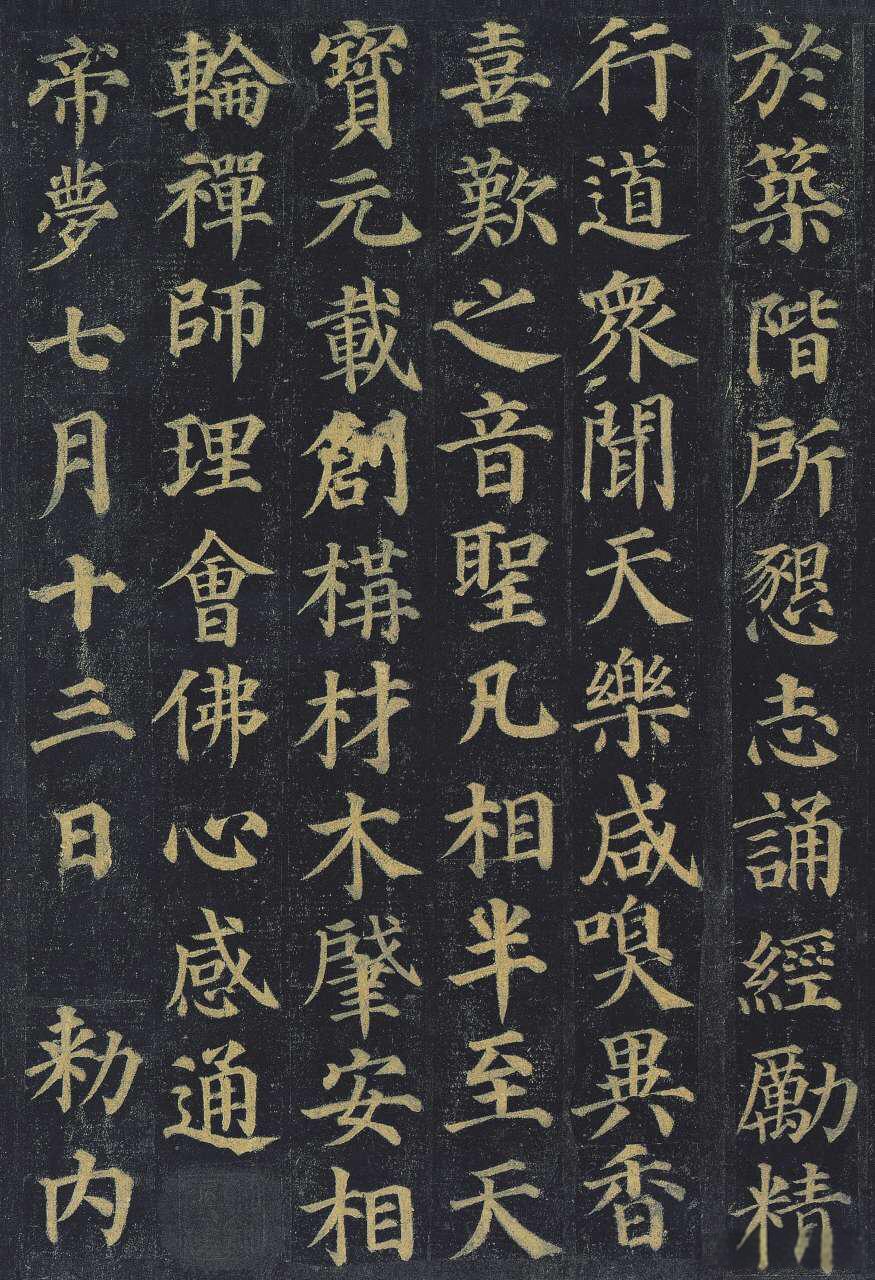 於築階所懇志誦經勵精
行道衆聞天樂咸嗅異香
喜歎之音聖凡相半至天
寶元載創構材木肇安相
輪禪師理會佛心感通
帝夢七月十三日 勑内